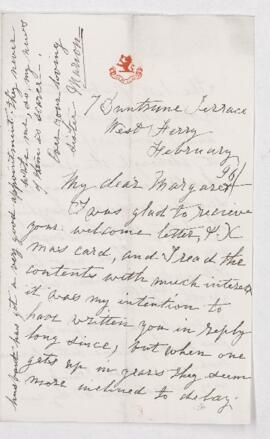 7 Duntrune Terrace
West Ferry
February
96/
My dear Margaret
I was glad to recieve
your welcome letter, & X
mas card, and I read the
contents with much interest
it was my intention to
have written you in reply
long since, but when one
gets up in years they seem
more inclined to delay.
husband has got a very good appointment. They never
write me, so my news
of them is scarce.
Ever your loving
sister Marion